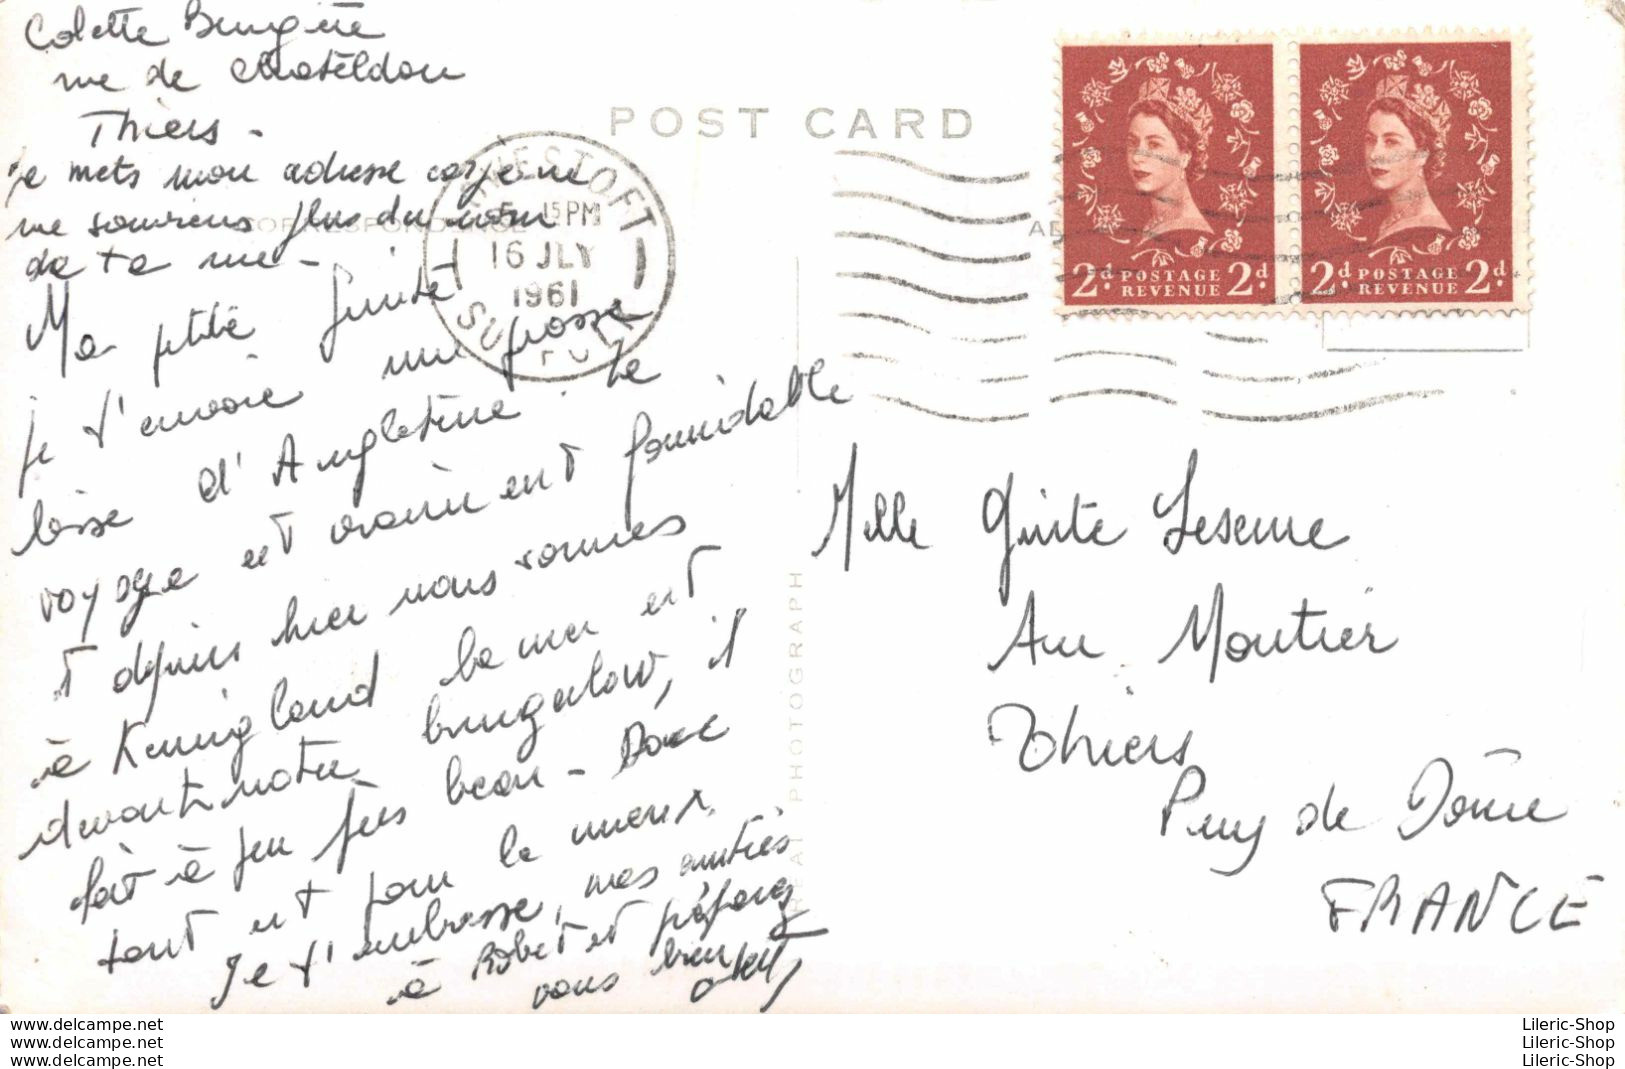 Colette Brugière
rue de Chateldon
Thiers -
Je mets mon adresse car je ne
me souviens plus du nom
de ta rue -
Ma petite Guite
je t'envoie une grosse
bise d'Angleterre. Le
voyage est vraiment formidable
et depuis hier nous sommes
à Kessingland la mer est
devant notre bungalow, il
fait à peu près beau - Donc
tout est pour le mieux.
Je t'embrasse, mes amitiés
à Robert et
vous bien
POST CARD
CORRESPONDENCE
LOWESTOFT
5.15PM
16 JLY
1961
SUFFOLK
2d POSTAGE REVENUE 2d
2d POSTAGE REVENUE 2d
REAL PHOTOGRAPH
Melle Guite
Au Moutier
Thiers
Puy de Dôme
FRANCE
www.delcampe.net
www.delcampe.net
www.delcampe.net
Lileric-Shop
Lileric-Shop
Lileric-Shop